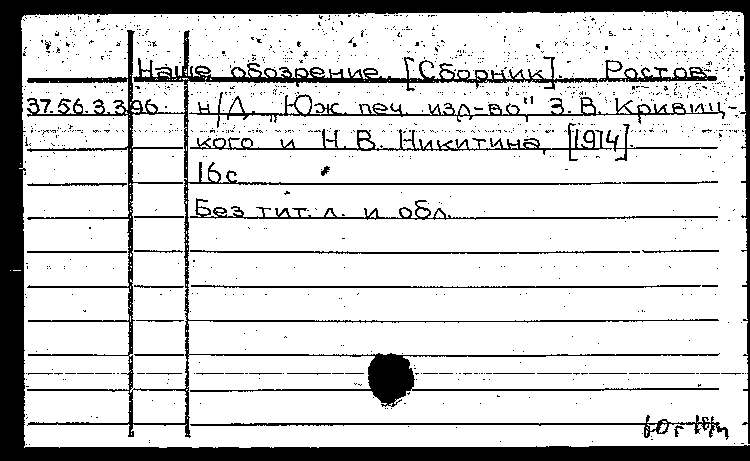 Наше обозрение. [Сборник]. Ростов
37.56.3.396. н/Д. „Юж. печ. изд-во", З.В. Кривиц-
кого и Н.В. Никитина, [1914].
16с
Без тит. л. и обл.